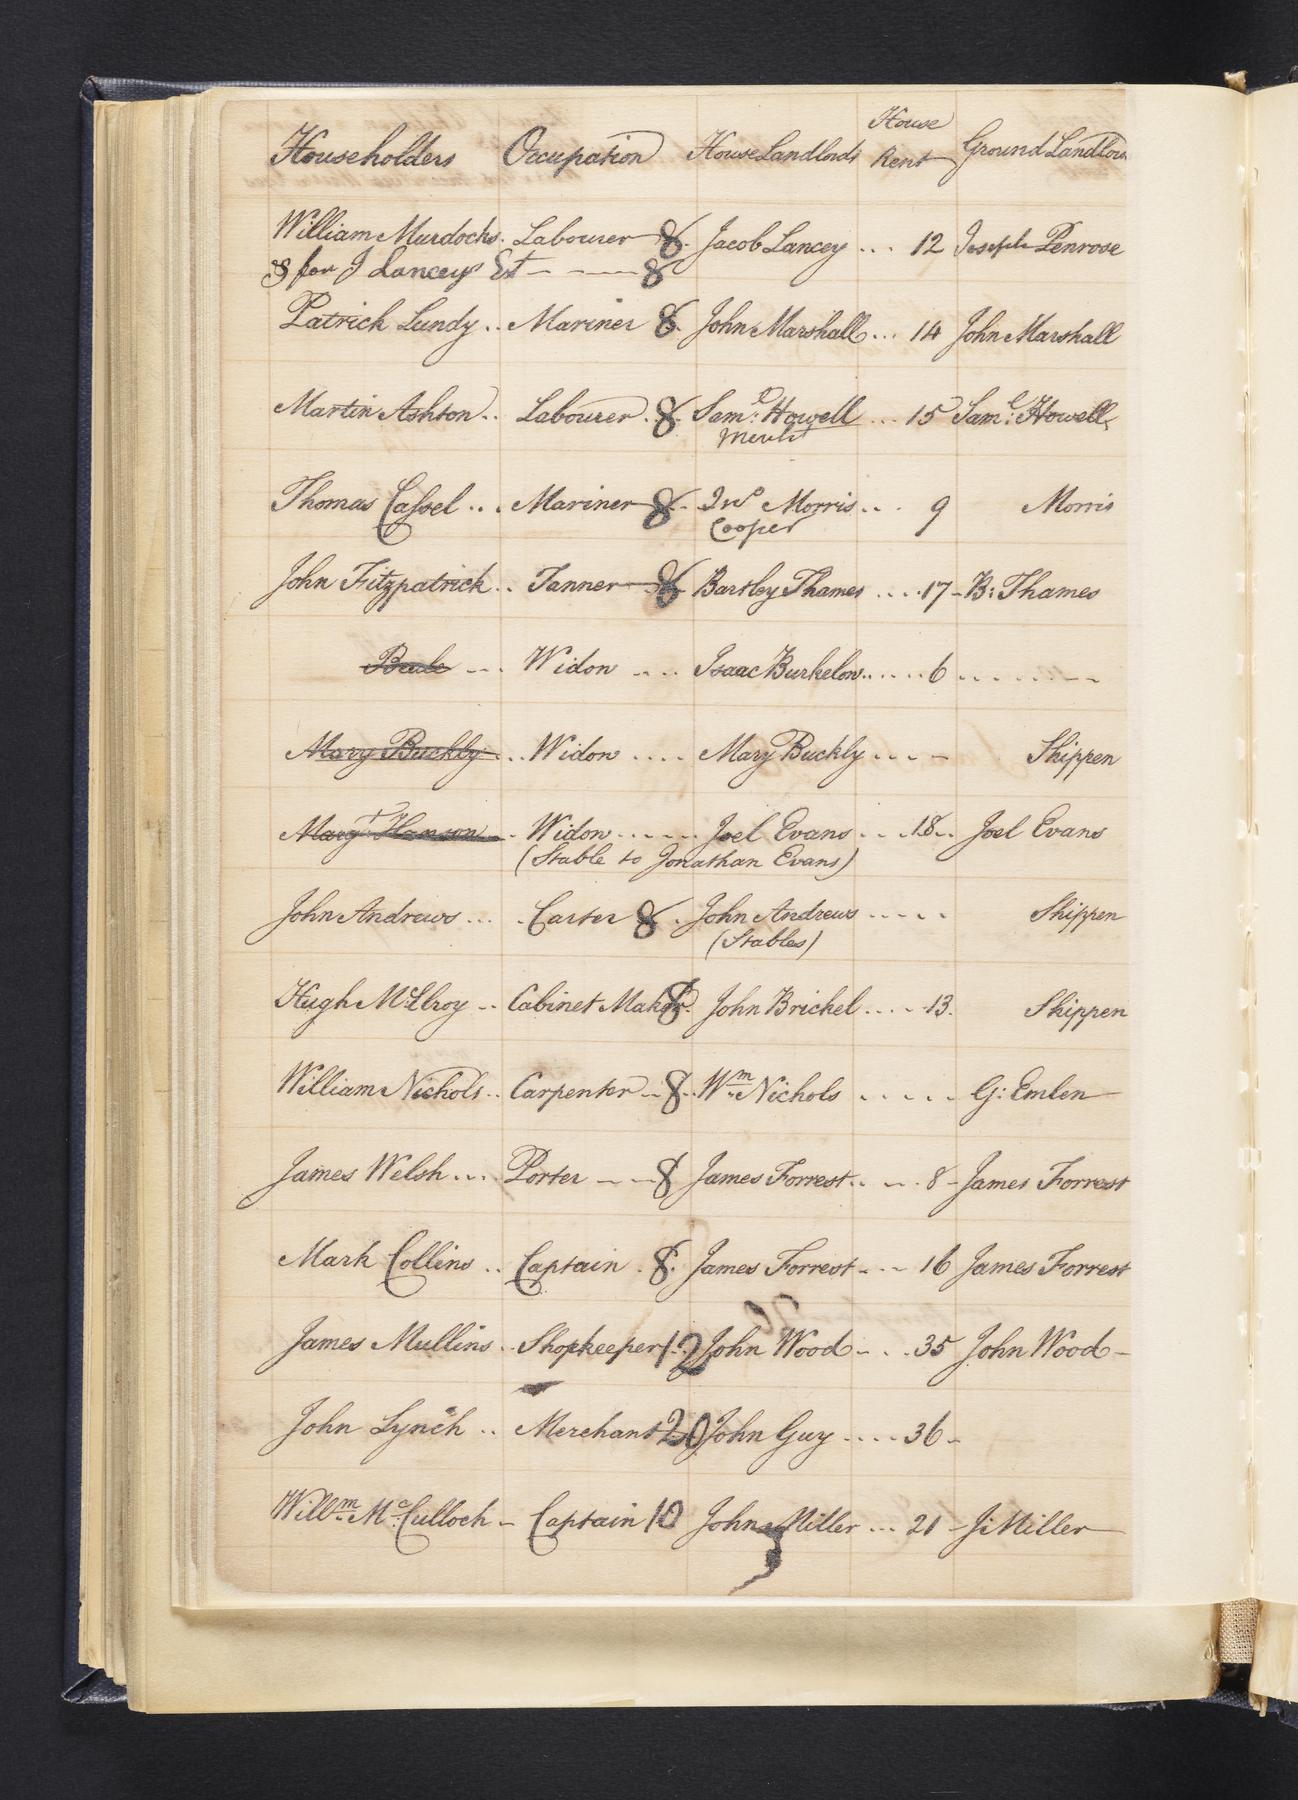 Householders Occupation House Landlords House Rent Ground Landlou
William Murdochs. Labourer 8. Jacob Lancey ... 12 Joseph Penrose
& for J Lanceys Est - - - 8
Patrick Lundy .. Mariner 8. John Marshall ... 14 John Marshall
Martin Ashton .. Labourer. 8. Saml: Howell ... 15 Saml: Howell
Mercht
Thomas Cassel ... Mariner 8.. Jno Morris ... 9 Morris
Cooper
John Fitzpatrick .. Tanner 8. Bartley Thames .... 17 - B: Thames
Beale --- Widow .... Isaac Burkelow ...... 6 .......
Mary Buckly ... Widow .... Mary Buckly .... Shippen
Margt Hanson .. Widow ...... Joel Evans ... 18 .. Joel Evans
(Stable to Jonathan Evans)
John Andrews ... Carter 8. John Andrews ..... Shippen
(Stables)
Hugh McIlroy .. Cabinet Maker 8. John Brickel .... 13. Shippen
William Nichols .. Carpenter .. 8.. Wm Nichols ..... G: Emlen
James Welsh ... Porter -- 8 James Forrest .. ... 8 - James Forrest
Mark Collins .. Captain . 8. James Forrest ... 16 James Forrest
James Mullins .. Shopkeeper 12 John Wood ... 35 John Wood -
John Lynch .. Merchant 20 John Guy .... 36 -
Willm McCulloch - Captain 10 John Miller ... 21 - J: Miller